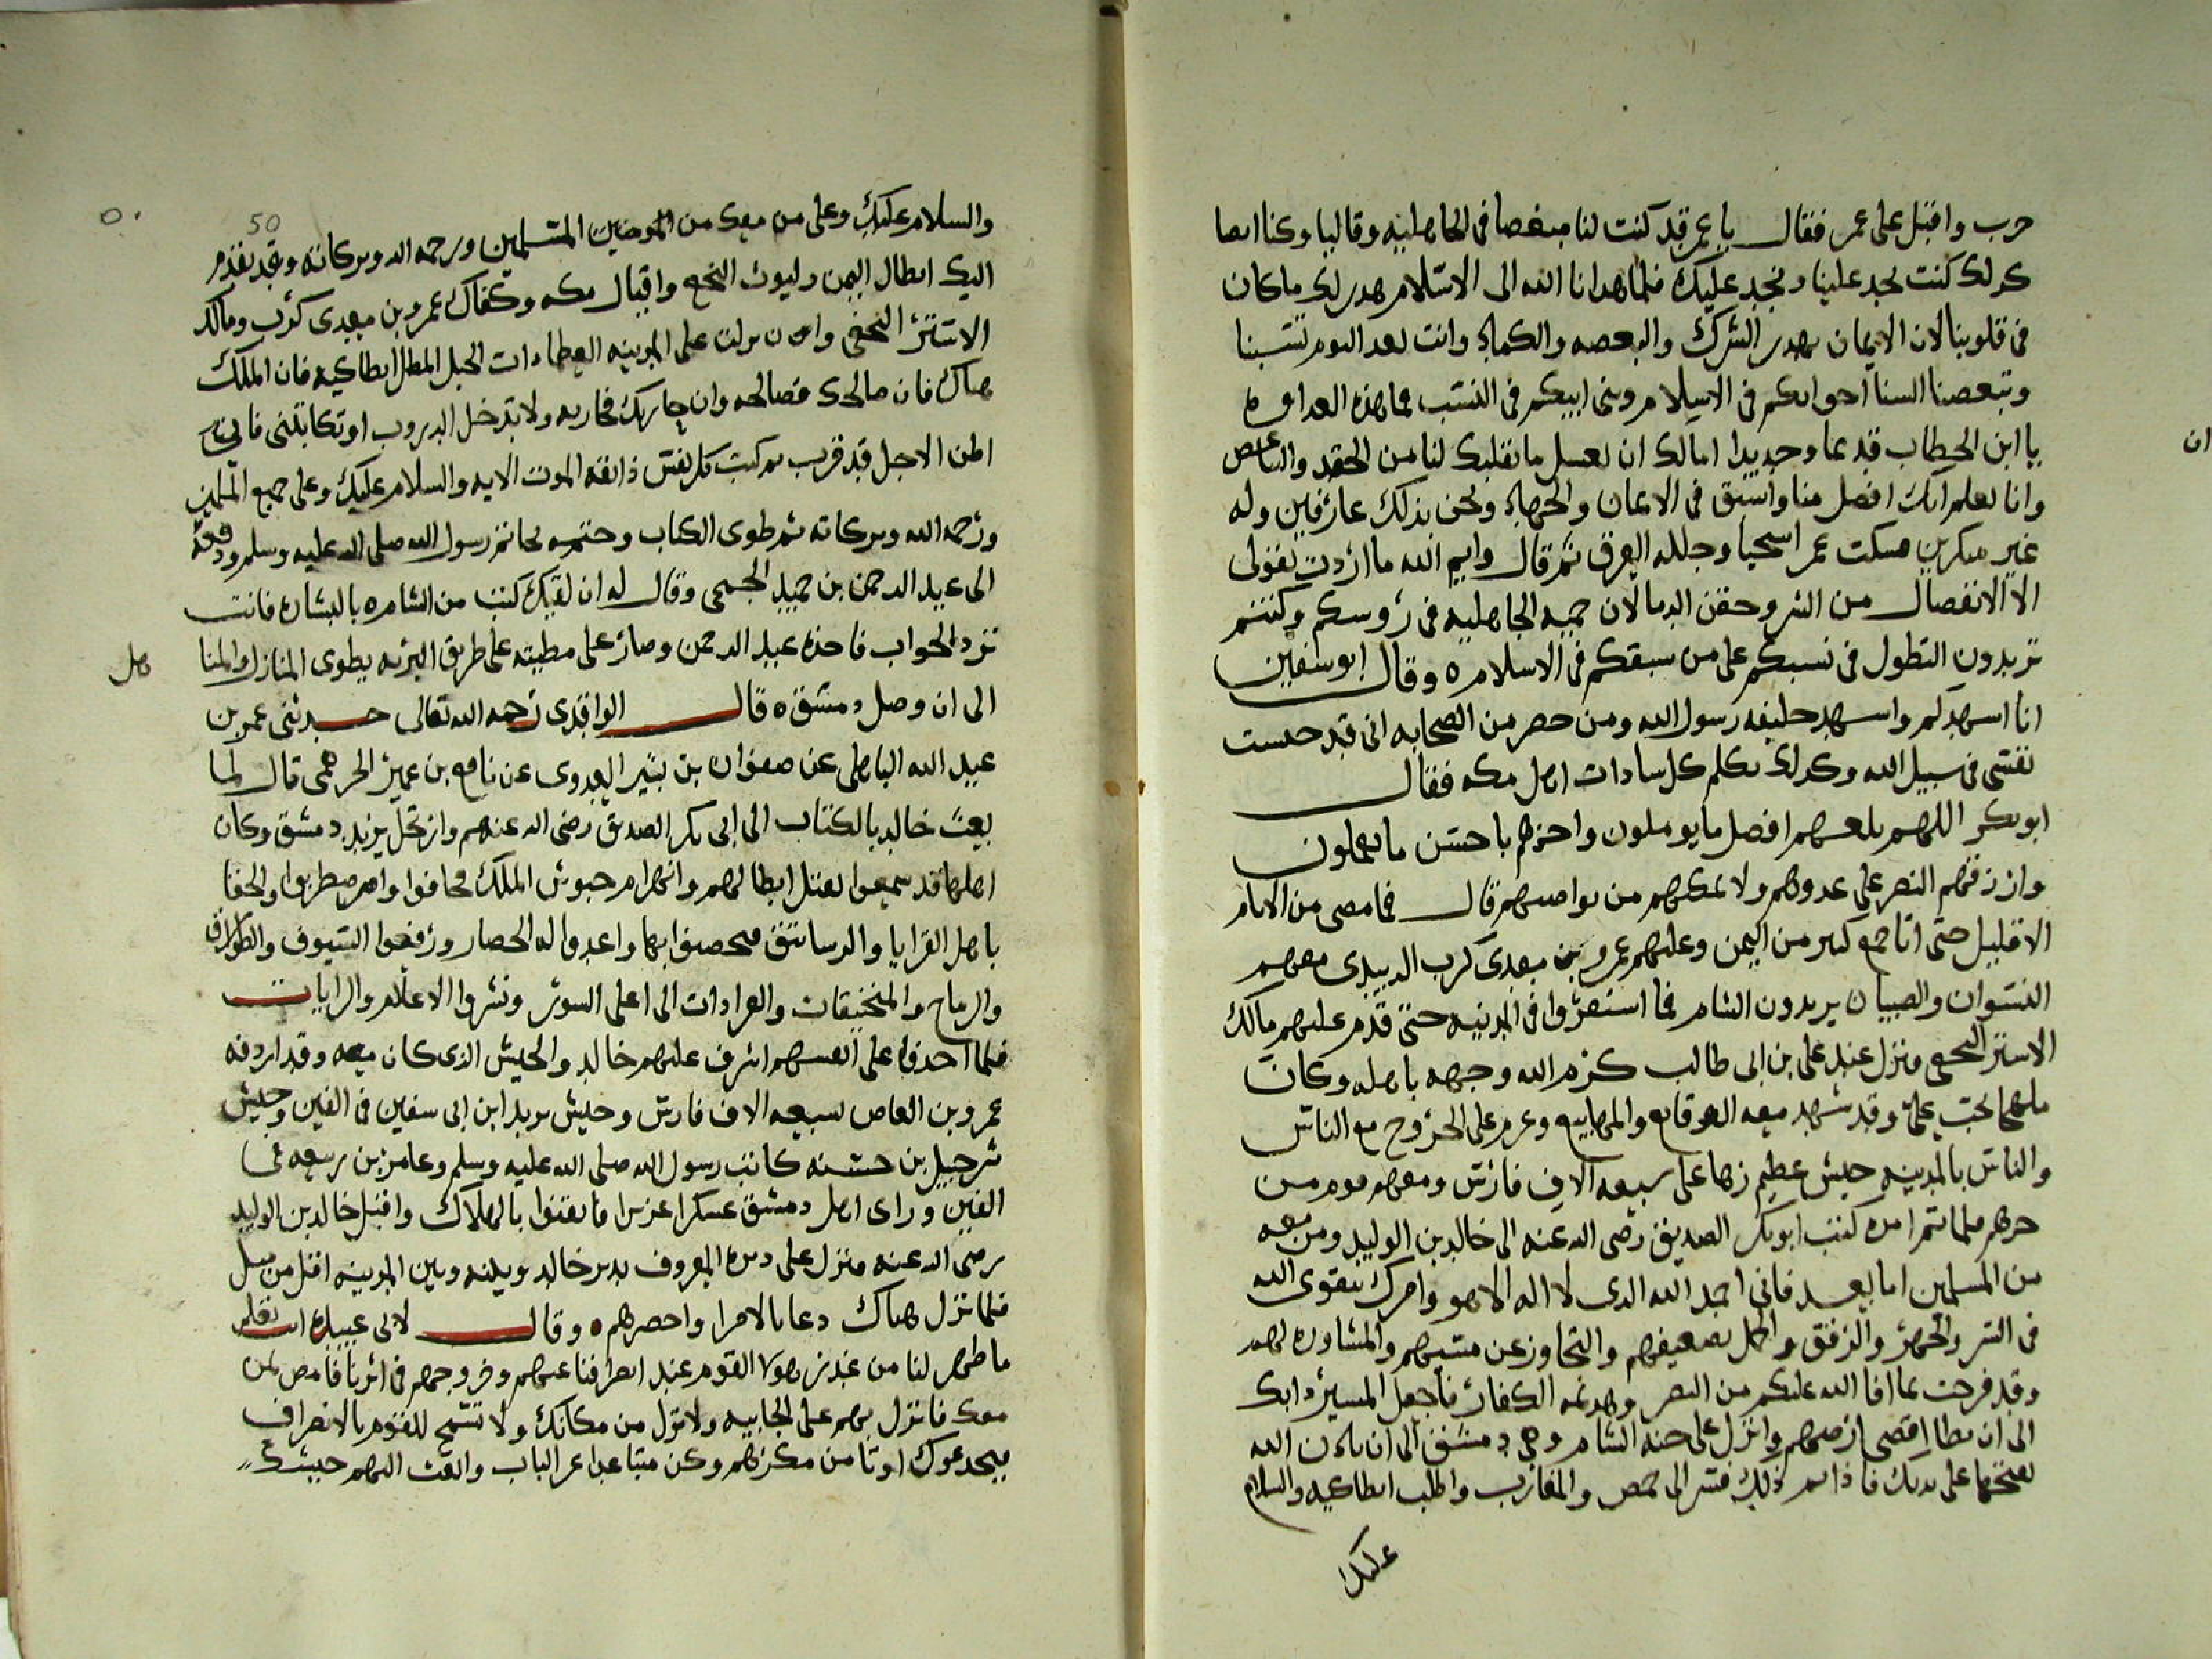 حرب واقبل على عمر فقال يا عمر قد كنت لنا مبغضا فى الجاهليه وقاليا وكنا ايضا
كدلك كنت تجد علينا ونجد عليك فلما هدانا الله الى الاسلام هدر لك ما كان
فى قلوبنا لان الايمان يهدر الشرك والبغضه والكماء وانت بعد اليوم تسبنا
وتبغضنا السنا اخوانكم فى الاسلام وبنى ابيكم فى النسب فما هذه العداوه
يا ابن الخطاب قديما وحديدا اما لك ان تغسل ما بقلبك لنا من الحقد والتباغض
ان
وانا نعلم انك افضل منا واسبق فى الايمان والجهاد ونحن بذلك عارفين وله
غير منكرين فسكت عمر استحيا وجلله العرق ثم قال وايم الله ما اردت بقولى
الا الانفصال من الشر وحقن الدما لان حميه الجاهليه فى رؤوسكم وكنتم
تريدون التطول فى نسبكم على من سبقكم فى الاسلام ه وقال ابو سفين
انا اسهدكم واسهد خليفه رسول الله ومن حضر من الصحابه انى قد حبست
نفسى فى سبيل الله وكدلك تكلم كل سادات اهل مكه فقال
ابو بكر اللهم بلغهم افضل ما يوملون واجزهم باحسن ما يعملون
وارزقهم النصر على عدوهم ولا تمكنهم من نواصيهم قال فما مضى من الايام
الا قليل حتى اتا جمع كبير من اليمن وعليهم عمرو بن معدى كرب الدبيدى معهم
النسوان والصبيان يريدون الشام فما استقروا فى المدينه حتى قدم عليهم مالك
الاستر النخعى ونزل عند على بن ابى طالب كرم الله وجهه باهله وكان
ملهما بحب على وقد شهد معه الوقايع والمهايع وعزم على الخروج مع الناس
والناس بالمدينه جيش عظيم زها على سبعه الاف فارس ومعهم قوم من
جرهم فلما تم امره كتب ابو بكر الصديق رضى الله عنه الى خالد بن الوليد ومن معه
من المسلمين اما بعد فانى احمد الله الدى لا اله الا هو وامرك بتقوى الله
فى السر والجهر والرفق والحمل بضعيفهم والتجاوز عن مسيهم والمشاوره لهم
وقد فرحت بما افا الله عليكم من النصر وهزيمه الكفار فاجعل المسير دابك
الى ان تطا اقصى ارضهم وانزل على جنه الشام وهى دمشق الى ان ياذن الله
بفتحها على يديك فاذا تم ذلك فسر الى حمص والمغارب واطلب انطاكيه والسلام
عليك
50
والسلام عليك وعلى من معك من المومنين المسلمين ورحمه الله وبركاته وقد تقدم
اليك ابطال اليمن وليوث النخع واقيال مكه وكفاك عمرو بن معدى كرب ومالك
الاشتر النخعى واذا نزلت على المدينه العظما دات الجبل المطل انطاكيه فان الملك
هناك فان صالحك فصالحه وان حاربك فحاربه ولا تدخل الدروب او تكاتبنى فانى
اظن الاجل قد قرب ثم كتب كل نفس ذائقه الموت الايه والسلام عليك وعلى جميع المسلمين
ورحمه الله وبركاته ثم طوى الكتاب وختمه بخاتم رسول الله صلى الله عليه وسلم ودفعه
الى عبد الرحمن بن حميد الجمحى وقال له ان لقيك كنت من الشام ه بالبشاره فانت
ترد الجواب فاخذه عبد الرحمن وصار على مطيته على طريق البريه يطوى المنازل والمنا
هل
الى ان وصل دمشق ه قال الواقدى رحمه الله تعالى حدثنى عمر بن
عبيد الله الباهلى عن صفوان بن بشير العدوى عن نافع بن عمير الجرهمى قال لما
بعث خالد بالكتاب الى ابى بكر الصديق رضى الله عنهم وارتحل يريد دمشق وكان
اهلها قد سمعوا بقتل ابطالهم وانهزام جيوش الملك فخافوا واضطربوا والجفا
باهل القرايا والرساتق فتحصنوا بها واعدوا له الحصار ورفعوا السيوف والطوارق
والرماح والمنجنيقات والعرادات الى اعلى السور ونشروا الاعلام والرايات
فلما اخذوا على انفسهم اشرف عليهم خالد والجيش الذى كان معه وقد اردفه
عمرو بن العاص بسبعه الاف فارس وجيش يزيد ابن ابى سفين فى الفين وجيش
شرحبيل بن حسنه كاتب رسول الله صلى الله عليه وسلم وعامر بن ربيعه فى
الفين وراى اهل دمشق عسكرا عزيزا فايقنوا بالهلاك واقبل خالد بن الوليد
رضى الله عنه ونزل على ديره المعروف بدير خالد وبينه وبين المدينه اقل من ميل
فلما نزل هناك دعا بالامرا واحضرهم ه وقال لابى عبيده انت تعلم
ما ظهر لنا من غدر هولا القوم عند انصرافنا عنهم وخروجهم فى اثرنا فامض بمن
معك فانزل بهم على الجابيه ولا تزل من مكانك ولا تسمح للقوم بالانصراف
فيخدعوك او تامن مكرهم وكن متباعدا عن الباب وابعث اليهم جيشك